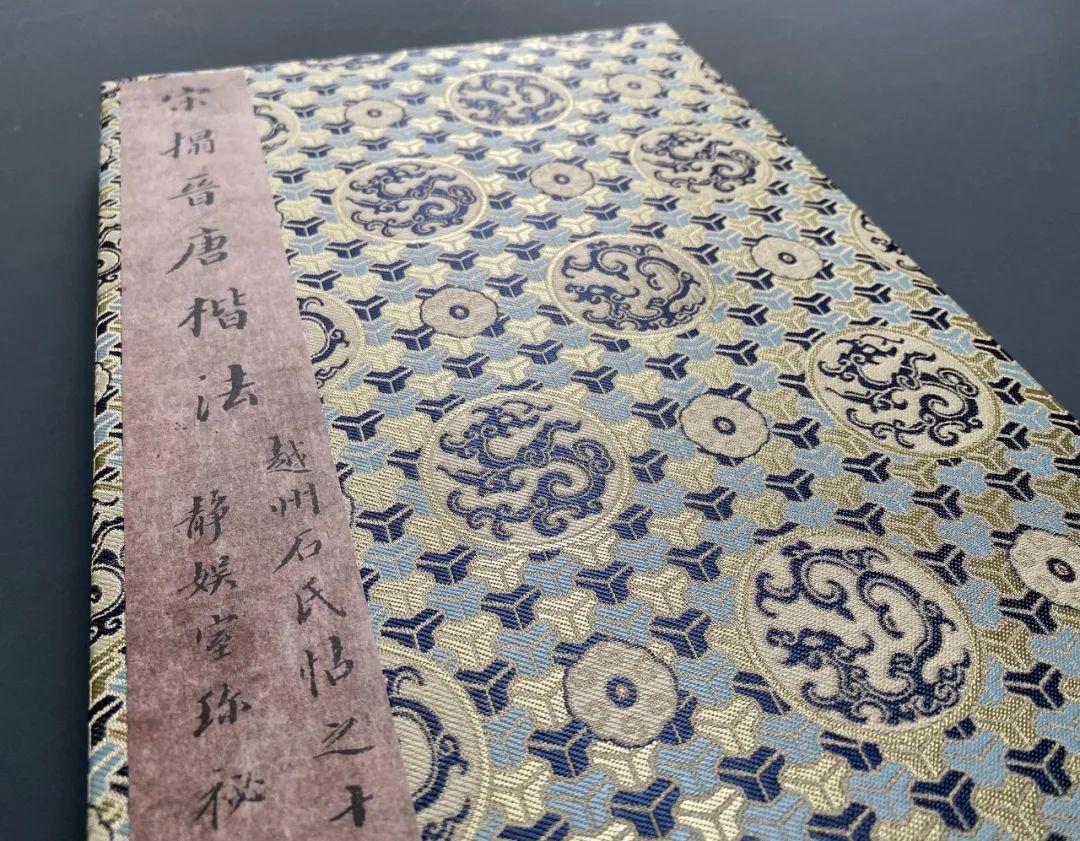 宋搨晉唐楷法
越州石氏帖之十
靜娛室珍祕